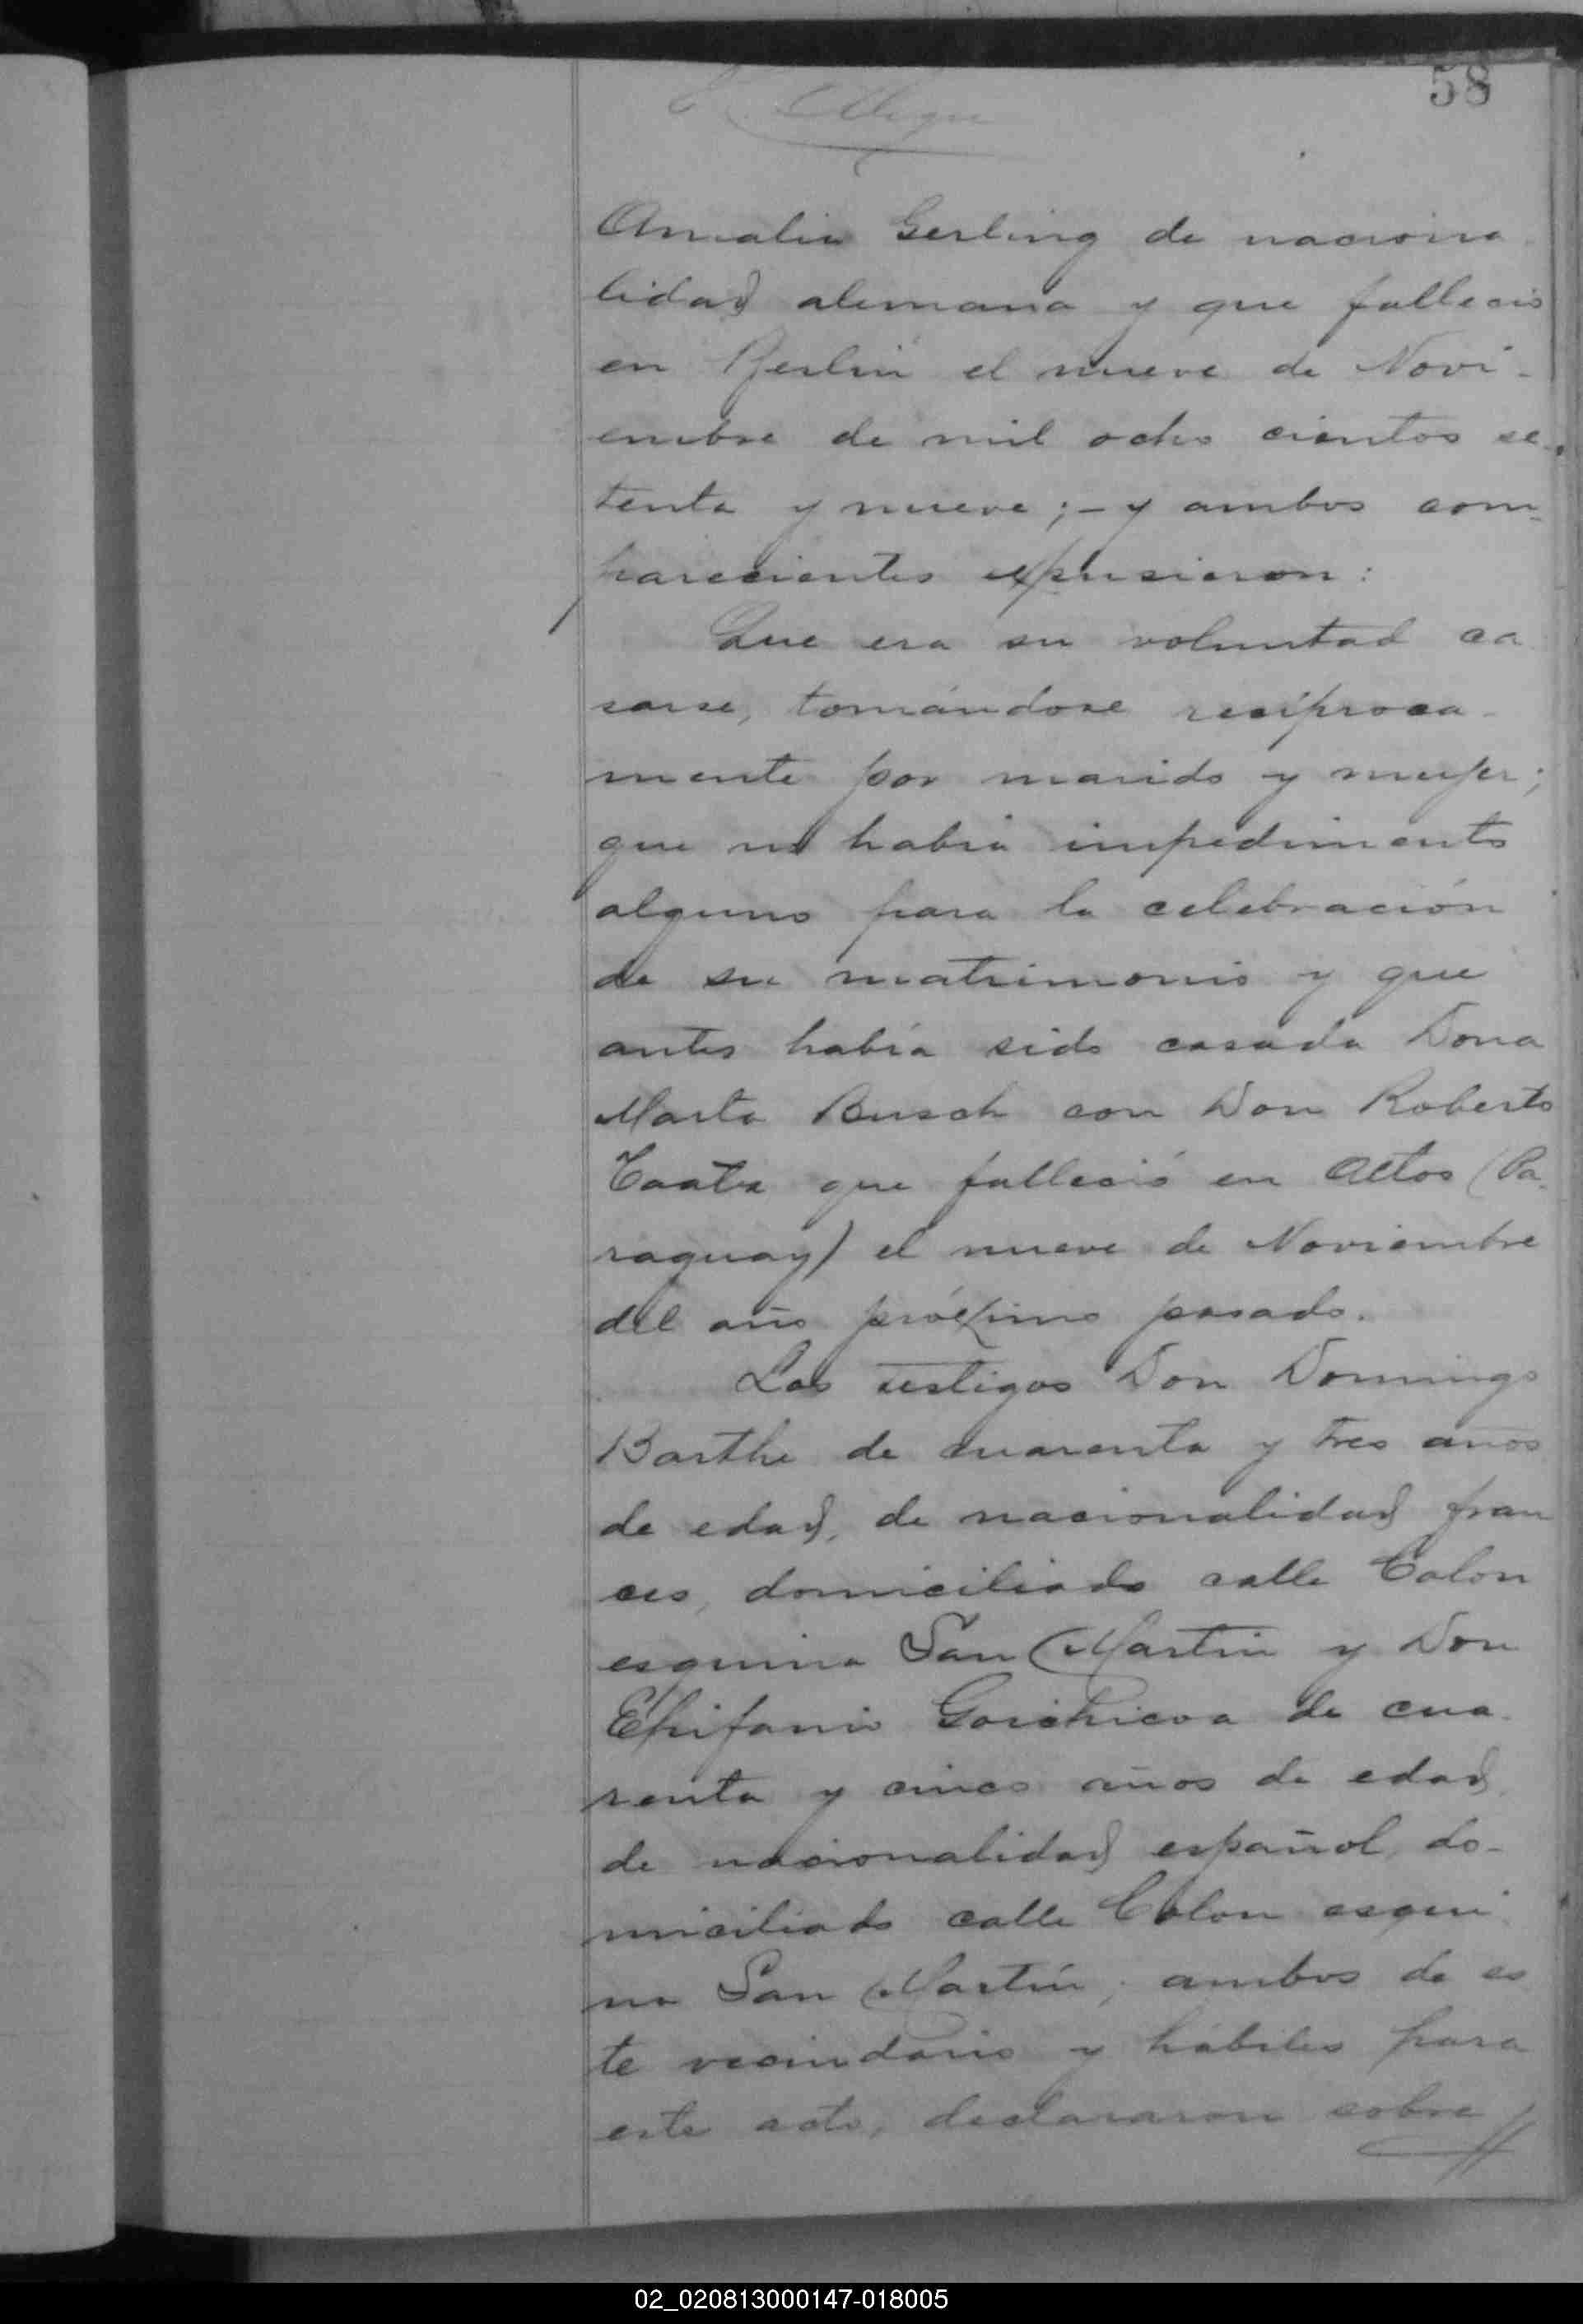 58
Amalia Gerling de naciona
lidad alemana y que falleció
en Berlin el nueve de Novi-
embre de mil ocho cientos se-
tenta y nueve; - y ambos com-
parecientes expusieron:
Que era su voluntad ca
sarse, tomándose recíproca-
mente por marido y mujer;
que no habia impedimento
alguno para la celebración
de su matrimonio y que
antes había sido casada Dona
Marta Busch con Don Roberto
que falleció en Altos (Pa-
raguay) el nueve de Noviembre
del año próximo pasado.
Los testigos Don Domingo
Barthe de cuarenta y tres años
de edad, de nacionalidad fran
ces, domiciliado calle Colon
esquina San Martin y Don
Epifanio de cua-
renta y cinco años de edad,
de nacionalidad español, do-
miciliado calle Colon esqui
na San Martín; ambos de es
te vecindario y hábiles para
este acto, declararon sobre
02_020813000147-018005